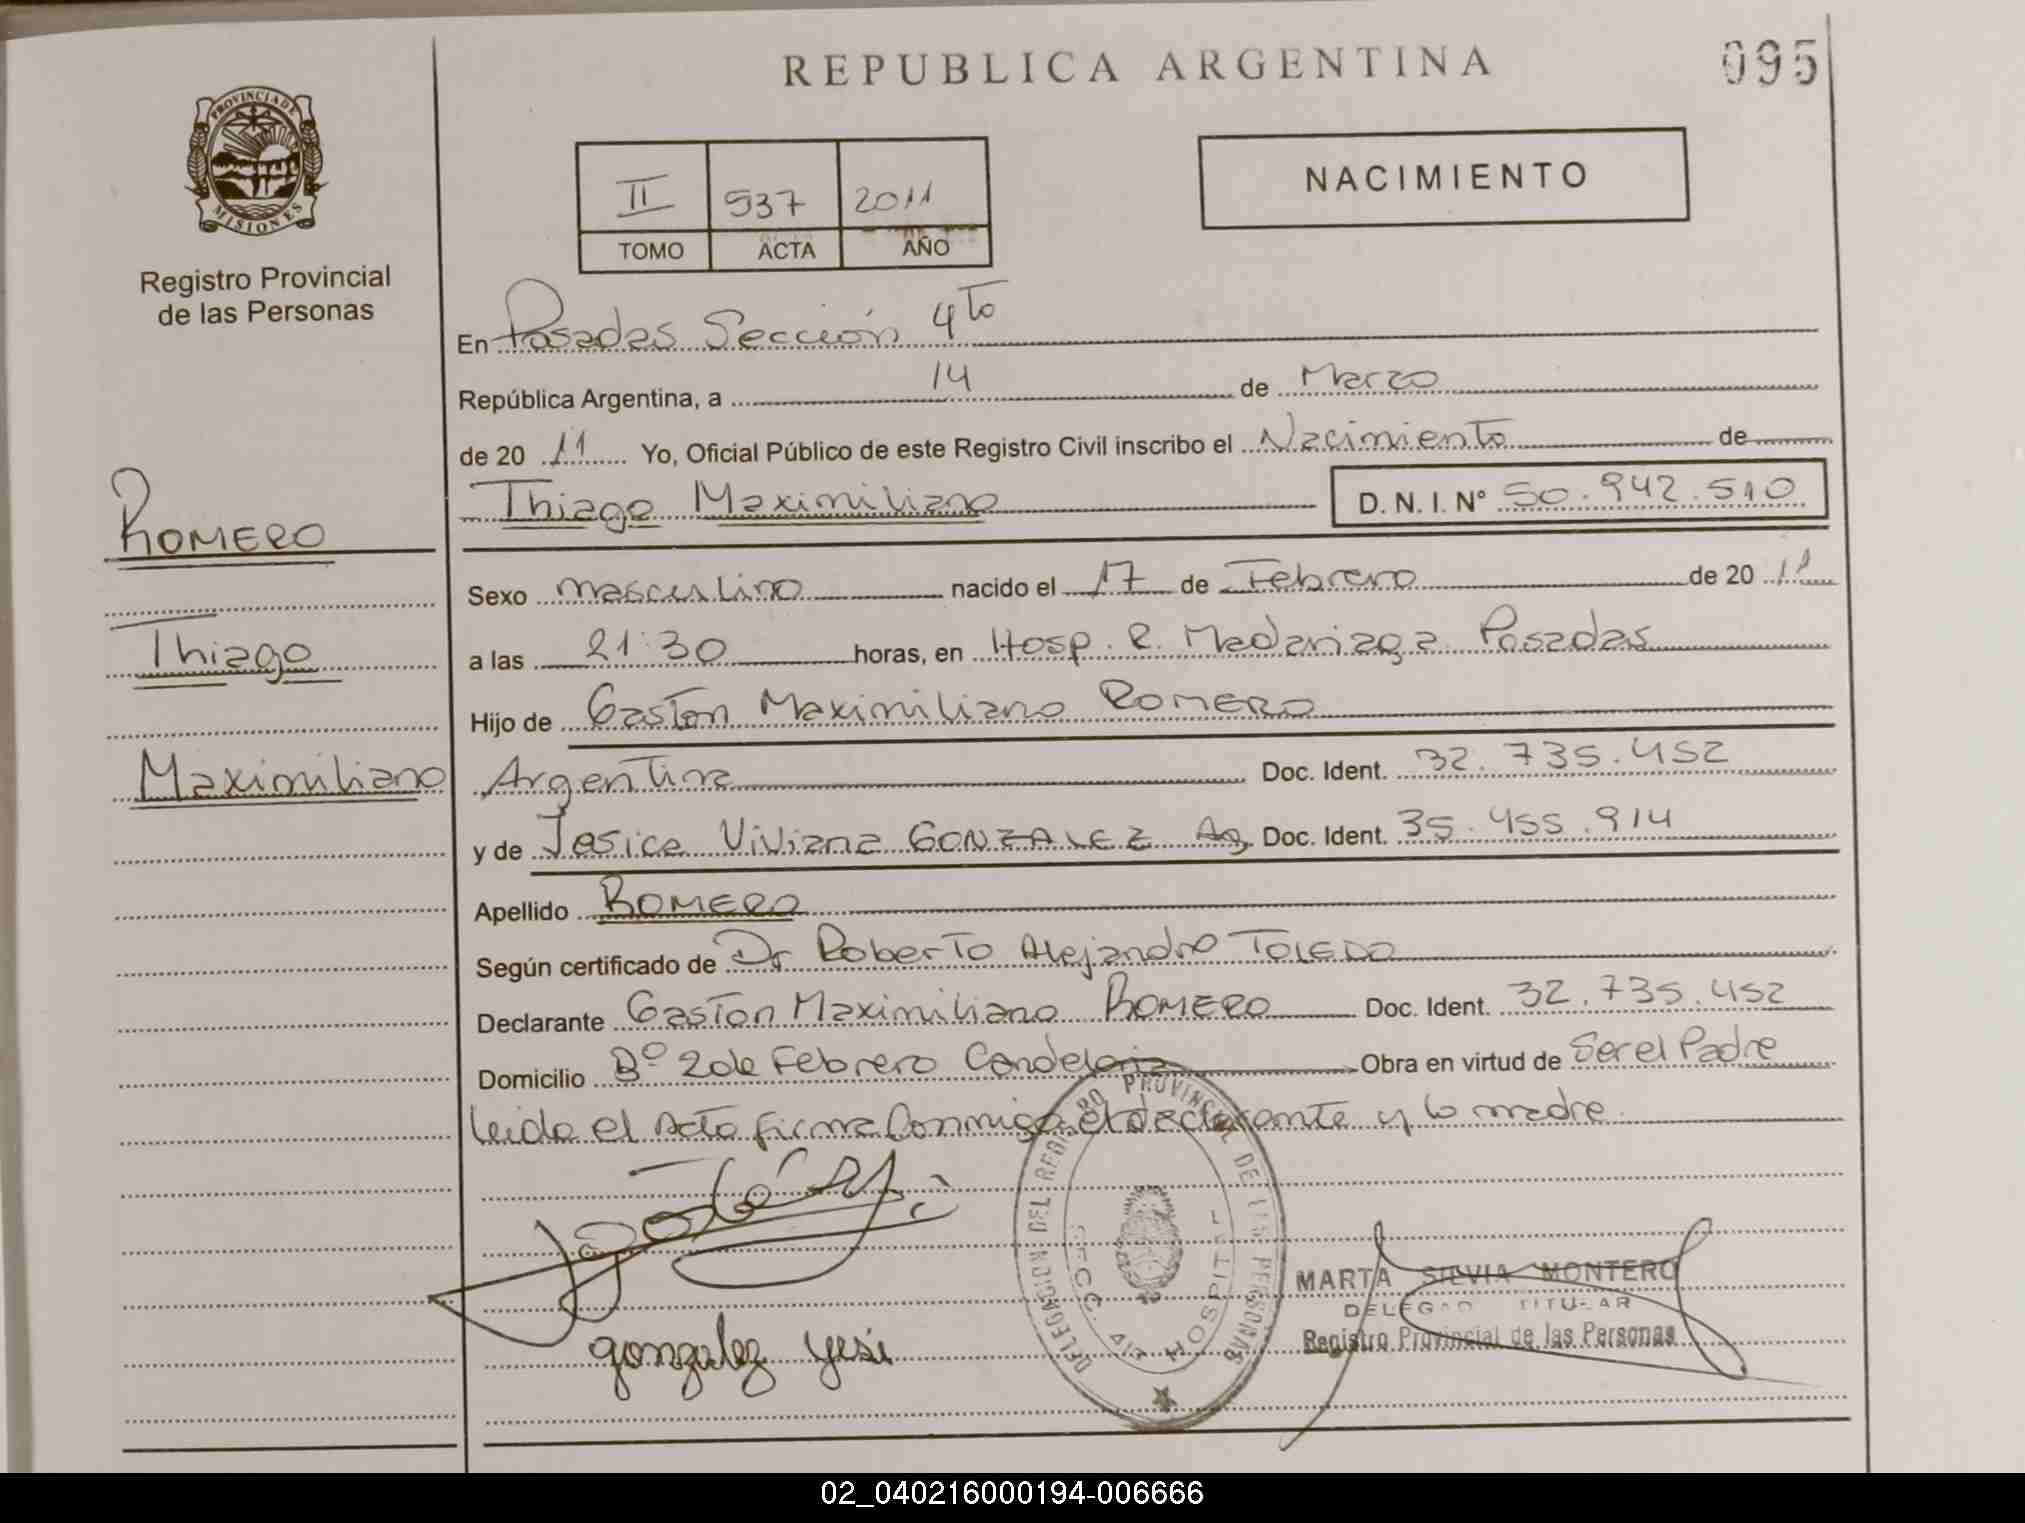 REPUBLICA ARGENTINA
095
PROVINCIA DE
MISIONES
Registro Provincial
de las Personas
II 937 2011
TOMO ACTA AÑO
NACIMIENTO
En Posadas Sección 4to
República Argentina, a 14 de Marzo
de 20 11 Yo, Oficial Público de este Registro Civil inscribo el Nacimiento de
Thiago Maximiliano D. N. I. N° 50.942.510
ROMERO
Thiago
Maximiliano
Sexo masculino nacido el 17 de Febrero de 20 11
a las 21:30 horas, en Hosp. R. Madariaga Posadas
Hijo de Gaston Maximiliano ROMERO
Argentina Doc. Ident. 32.735.452
y de Jesica Viviana GONZALEZ Ag. Doc. Ident. 35.455.914
Apellido ROMERO
Según certificado de Dr Roberto Alejandro TOLEDO
Declarante Gaston Maximiliano ROMERO Doc. Ident. 32.735.452
Domicilio B° 2 de Febrero Candelaria Obra en virtud de Ser el Padre
leida el Acta firma Conmigo el declarante y la madre.
gonzalez yesi
DELEGACION DEL REGISTRO PROVINCIAL DE LAS PERSONAS
SECC. 4ta HOSPITAL
MARTA SILVIA MONTERO
DELEGADO TITULAR
Registro Provincial de las Personas
02_040216000194-006666